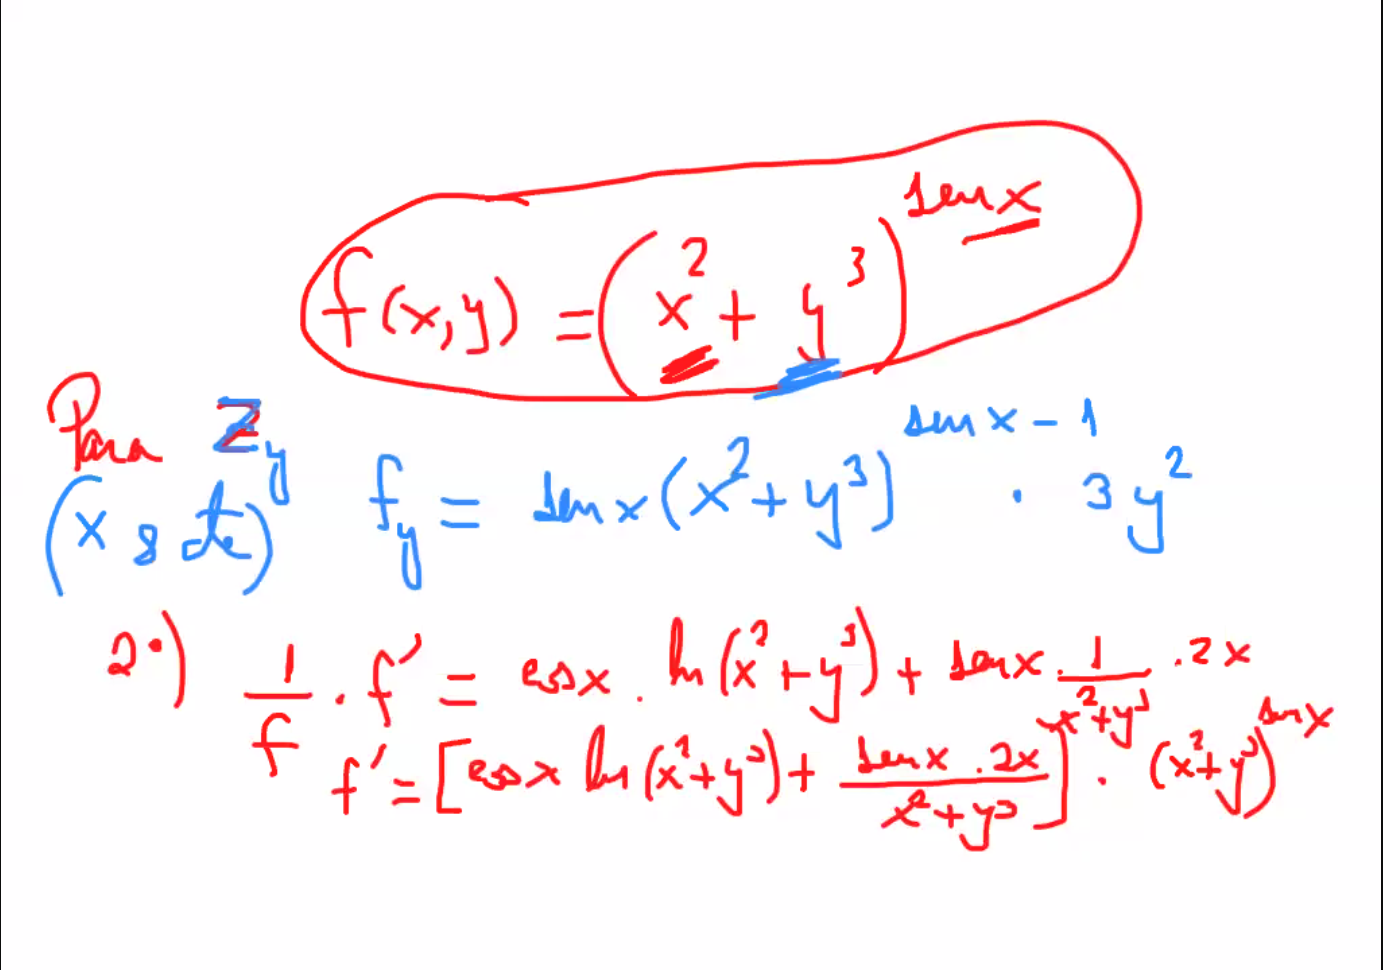 f(x,y) = (x² + y³)^sen x
Para Zy
(x es cte) fy = sen x (x² + y³)^sen x - 1 · 3y²
2º) 1/f · f' = cos x · ln(x² + y³) + sen x · 1/(x² + y³) · 2x
f' = [cos x ln(x² + y³) + (sen x · 2x)/(x² + y³)] · (x² + y³)^sen x